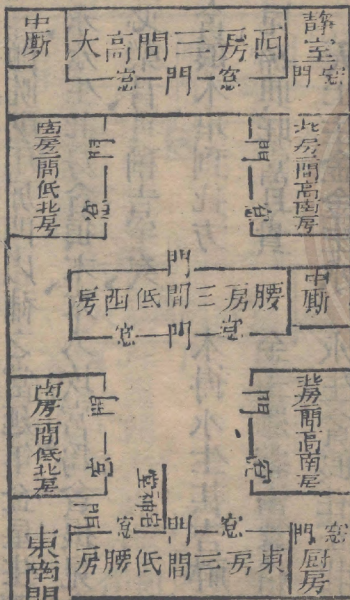 靜室
門窓
西房三間高大
窓門窓
中厮
北房二間高南房
門
窓
南房二間低北房
門
窓
中厮
門
腰房三間低西房
窓門窓
北房二間高南房
門
窓
南房二間低北房
門
窓
門
厨房
窓門窓
東房三間低腰房
門
東南門